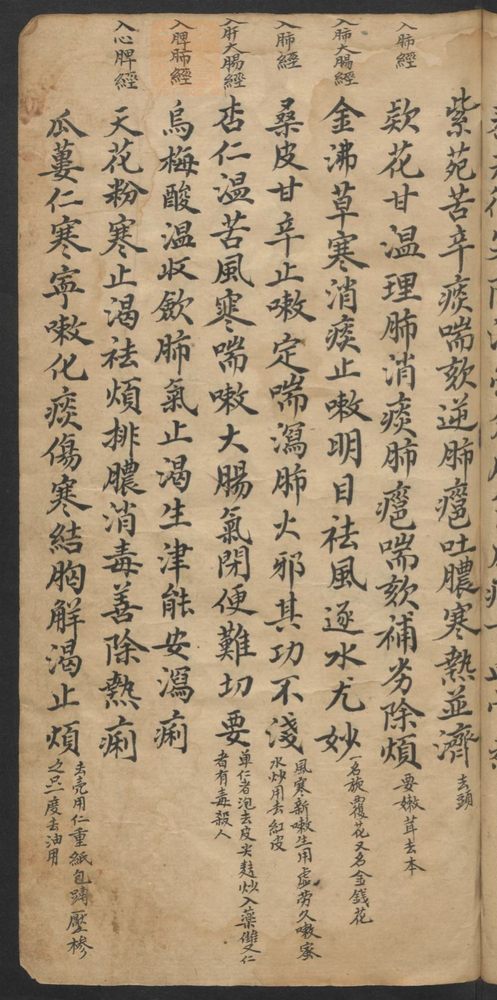 紫苑苦辛痰喘欬逆肺癰吐膿寒熱並濟 去頭
入肺經
欵花甘温理肺消痰肺癰喘欬補劣除煩 要嫩茸去本
入肺大腸經
金沸草寒消痰止嗽明目祛風逐水尤妙 一名旋覆花又名金錢花
入肺經
桑皮甘辛止嗽定喘瀉肺火邪其功不淺 風寒新嗽生用虛劳久嗽蜜
水炒用去紅皮
入肝大腸經
杏仁温苦風寒喘嗽大腸氣閉便難切要 單仁者泡去皮尖麸炒入藥雙仁
者有毒殺人
入脾肺經
烏梅酸温收歛肺氣止渴生津能安瀉痢
入心脾經
天花粉寒止渴祛煩排膿消毒善除熱痢
瓜蔞仁寒寧嗽化痰傷寒結胸解渴止煩 去壳用仁重紙包
之只一度去油用